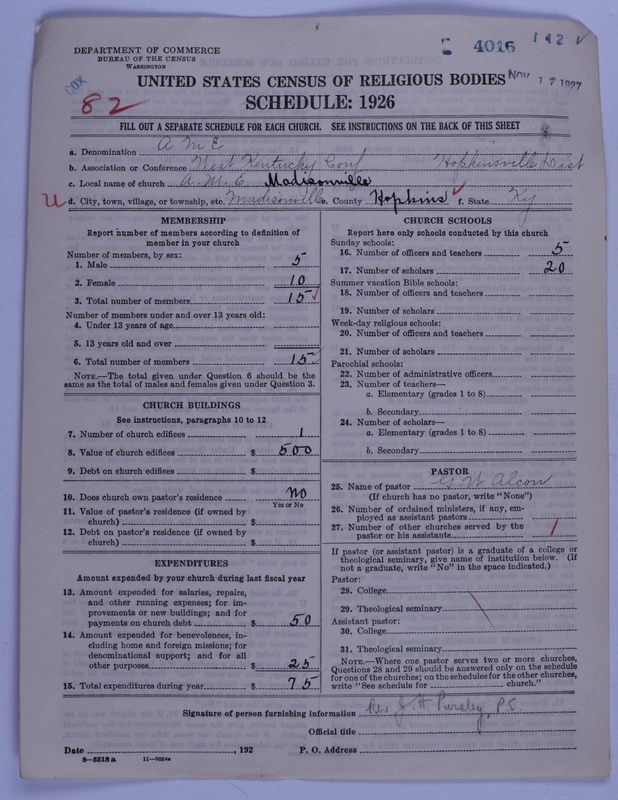 DEPARTMENT OF COMMERCE
BUREAU OF THE CENSUS
WASHINGTON
4016
142
NOV 17 1927
COX
82
UNITED STATES CENSUS OF RELIGIOUS BODIES
SCHEDULE: 1926
FILL OUT A SEPARATE SCHEDULE FOR EACH CHURCH. SEE INSTRUCTIONS ON THE BACK OF THIS SHEET
a. Denomination A M E
b. Association or Conference West Kentucky Conf Hopkinsville Dist
c. Local name of church A. M. E Madisonville
d. City, town, village, or township, etc. Madisonville e. County Hopkins f. State Ky
MEMBERSHIP
Report number of members according to definition of
member in your church
Number of members, by sex:
1. Male 5
2. Female 10
3. Total number of members 15
Number of members under and over 13 years old:
4. Under 13 years of age
5. 13 years old and over
6. Total number of members 15
NOTE.—The total given under Question 6 should be the
same as the total of males and females given under Question 3.
CHURCH BUILDINGS
See instructions, paragraphs 10 to 12
7. Number of church edifices 1
8. Value of church edifices $ 500
9. Debt on church edifices $
10. Does church own pastor's residence no
Yes or No
11. Value of pastor's residence (if owned by
church) $
12. Debt on pastor's residence (if owned by
church) $
EXPENDITURES
Amount expended by your church during last fiscal year
13. Amount expended for salaries, repairs,
and other running expenses; for im-
provements or new buildings; and for
payments on church debt $ 50
14. Amount expended for benevolences, in-
cluding home and foreign missions; for
denominational support; and for all
other purposes $ 25
15. Total expenditures during year $ 75
CHURCH SCHOOLS
Report here only schools conducted by this church
Sunday schools:
16. Number of officers and teachers 5
17. Number of scholars 20
Summer vacation Bible schools:
18. Number of officers and teachers
19. Number of scholars
Week-day religious schools:
20. Number of officers and teachers
21. Number of scholars
Parochial schools:
22. Number of administrative officers
23. Number of teachers—
a. Elementary (grades 1 to 8)
b. Secondary
24. Number of scholars—
a. Elementary (grades 1 to 8)
b. Secondary
PASTOR
25. Name of pastor G W Alcon
(If church has no pastor, write "None")
26. Number of ordained ministers, if any, em-
ployed as assistant pastors
27. Number of other churches served by the
pastor or his assistants 1
If pastor (or assistant pastor) is a graduate of a college or
theological seminary, give name of institution below. (If
not a graduate, write "No" in the space indicated.)
Pastor:
28. College
29. Theological seminary
Assistant pastor:
30. College
31. Theological seminary
NOTE.—Where one pastor serves two or more churches,
Questions 28 and 29 should be answered only on the schedule
for one of the churches; on the schedules for the other churches,
write "See schedule for church."
Signature of person furnishing information Rev J H Pursley, P.E.
Official title
Date , 192 P. O. Address
8—5518a 11—9054a